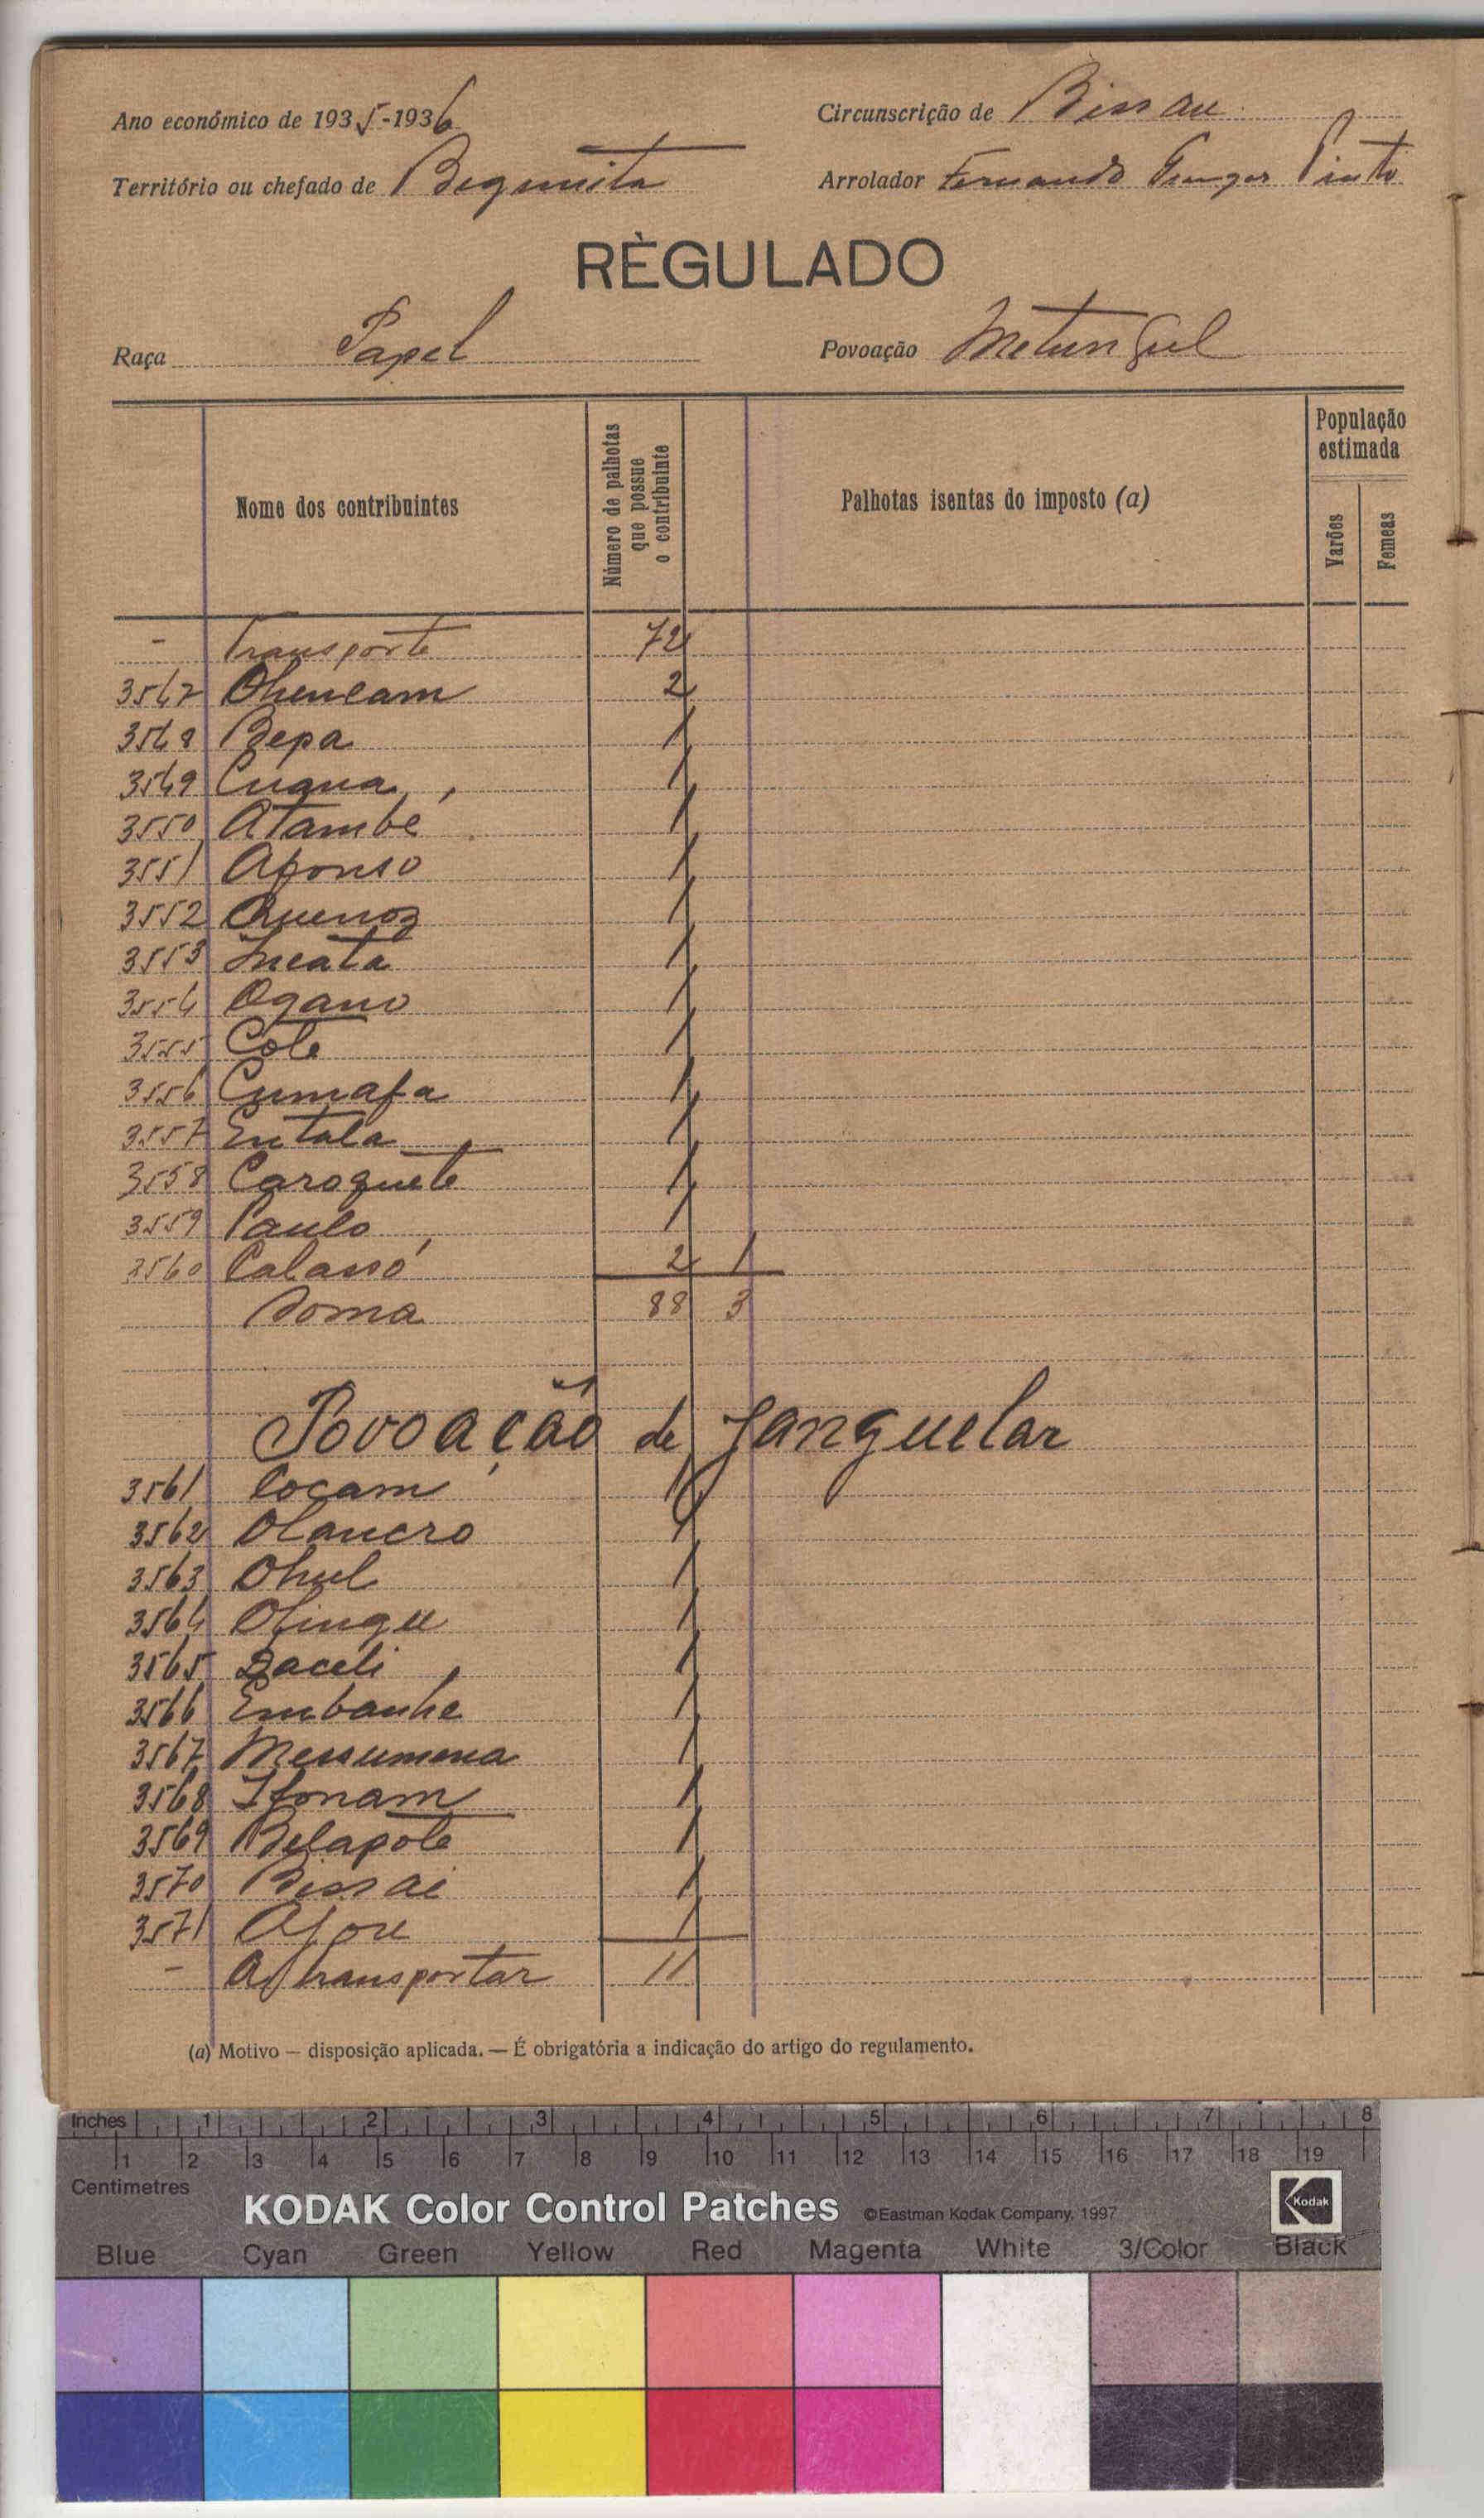 Ano económico de 1935-1936
Circunscrição de Bissau
Território ou chefado de Bigimita
Arrolador Fernando Pinto
RÈGULADO
Raça Papel
Povoação Metungul
Nome dos contribuintes
Número de palhotas que possue o contribuinte
Palhotas isentas do imposto (a)
População estimada
Varões
Femeas
- Transporte 72
3547 Ohencam 2
3548 Bepa 1
3549 Cugua 1
3550 Atambé 1
3551 Afonso 1
3552 Quenoz 1
3553 Incata 1
3554 Ogano 1
3555 Cole 1
3556 Cumafa 1
3557 Entala 1
3558 Caroquete 1
3559 Paulo 1
3560 Calassó 2 1
Soma 88 3
Povoação de Janguelar
3561 Coçam 1
3562 Olancro 1
3563 Ohul 1
3564 Ofingue 1
3565 Zaceli 1
3566 Embanhe 1
3567 Messumena 1
3568 Ifonam 1
3569 Belapote 1
3570 Bissai 1
3571 Afore 1
- A transportar 11
(a) Motivo — disposição aplicada. — É obrigatória a indicação do artigo do regulamento.
Inches 1 2 3 4 5 6 7 8
1 2 3 4 5 6 7 8 9 10 11 12 13 14 15 16 17 18 19
Centimetres
KODAK Color Control Patches ©Eastman Kodak Company, 1997 Kodak
Blue Cyan Green Yellow Red Magenta White 3/Color Black